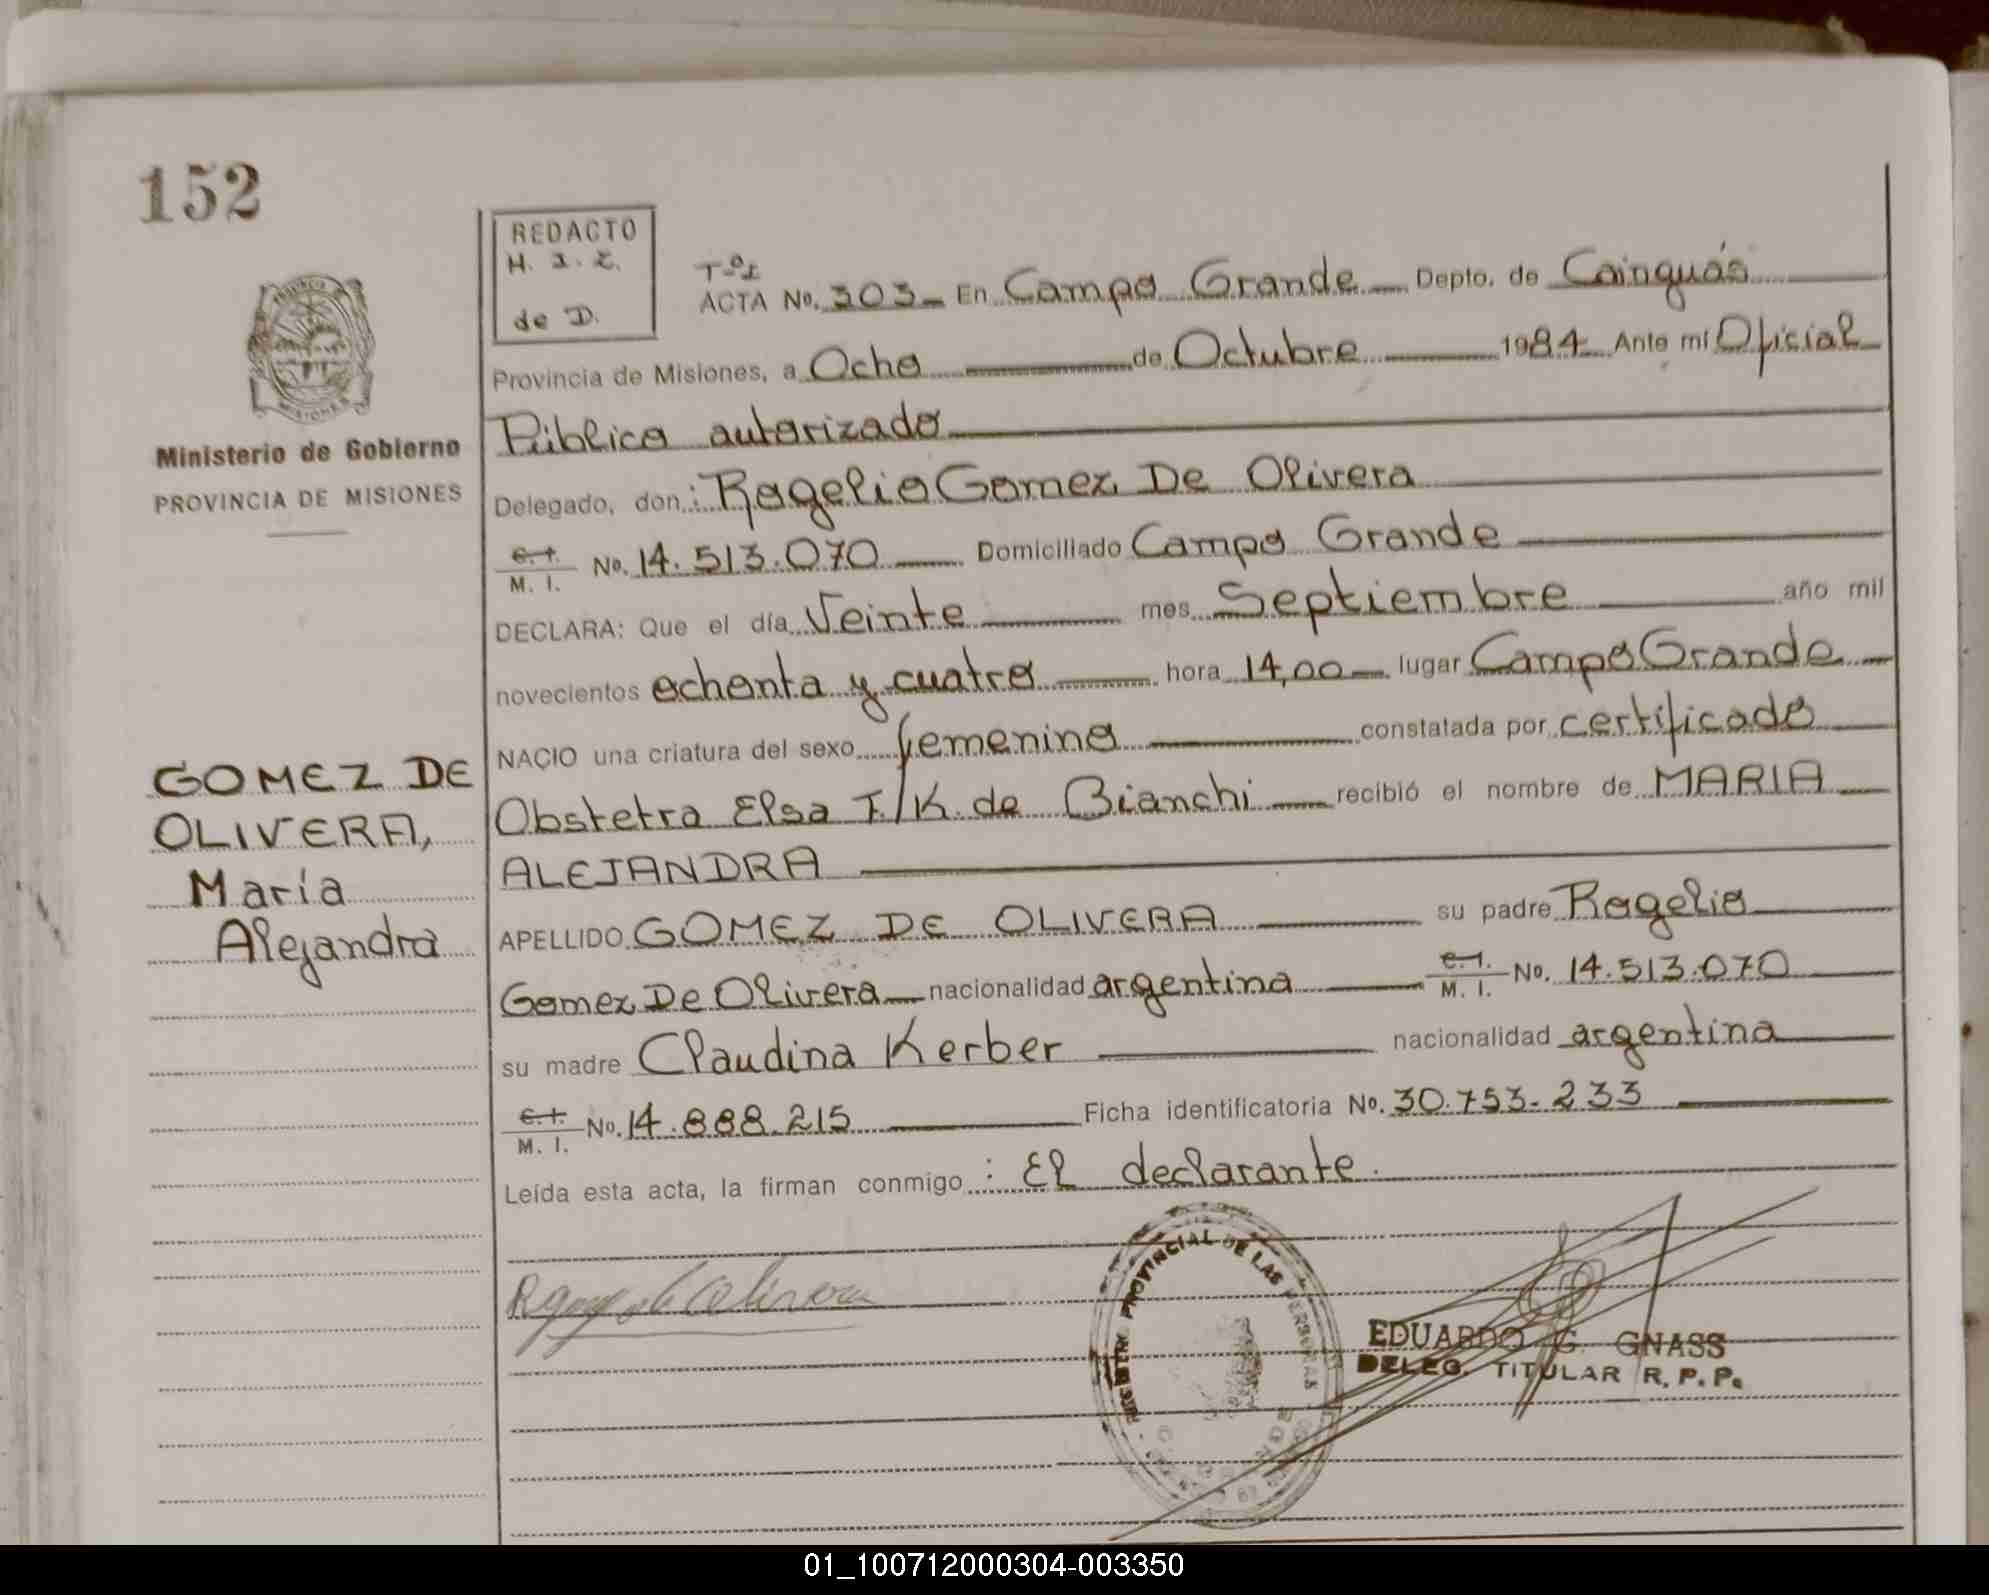 152
REDACTO
H. I. Z.
de D.
Tº I
ACTA No. 303 En Campo Grande Depto. de Cainguás
Provincia de Misiones, a Ocho de Octubre 1984 Ante mí Oficial
Público autorizado
Ministerio de Gobierno
PROVINCIA DE MISIONES
Delegado, don: Rogelio Gomez De Olivera
C.I. M. I. No. 14.513.070 Domiciliado Campo Grande
DECLARA: Que el día Veinte mes Septiembre año mil
novecientos ochenta y cuatro hora 14,00 lugar Campo Grande
NACIO una criatura del sexo femenino constatada por certificado
Obstetra Elsa T/K. de Bianchi recibió el nombre de MARIA
ALEJANDRA
GOMEZ DE
OLIVERA,
María
Alejandra
APELLIDO GOMEZ DE OLIVERA su padre Rogelio
Gomez De Olivera nacionalidad argentina C.I. M. I. No. 14.513.070
su madre Claudina Kerber nacionalidad argentina
C.I. M. I. No. 14.888.215 Ficha identificatoria No. 30.753.233
Leída esta acta, la firman conmigo: El declarante.
PROVINCIAL DE LAS PERSONAS
EDUARDO G. GNASS
DELEG. TITULAR R. P. P.
01_100712000304-003350